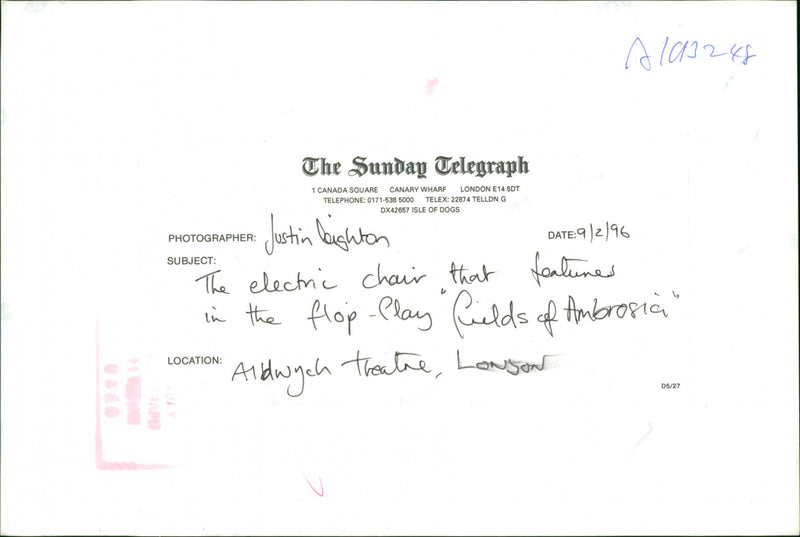 A193248
The Sunday Telegraph
1 CANADA SQUARE CANARY WHARF LONDON E14 5DT
TELEPHONE: 0171-538 5000 TELEX: 22874 TELLDN G
DX42657 ISLE OF DOGS
PHOTOGRAPHER: Justin Leighton DATE: 9/2/96
SUBJECT:
The electric chair that features
in the flop-Play "Fields of Ambrosia"
LOCATION: Aldwych theatre, LONDON
D5/27